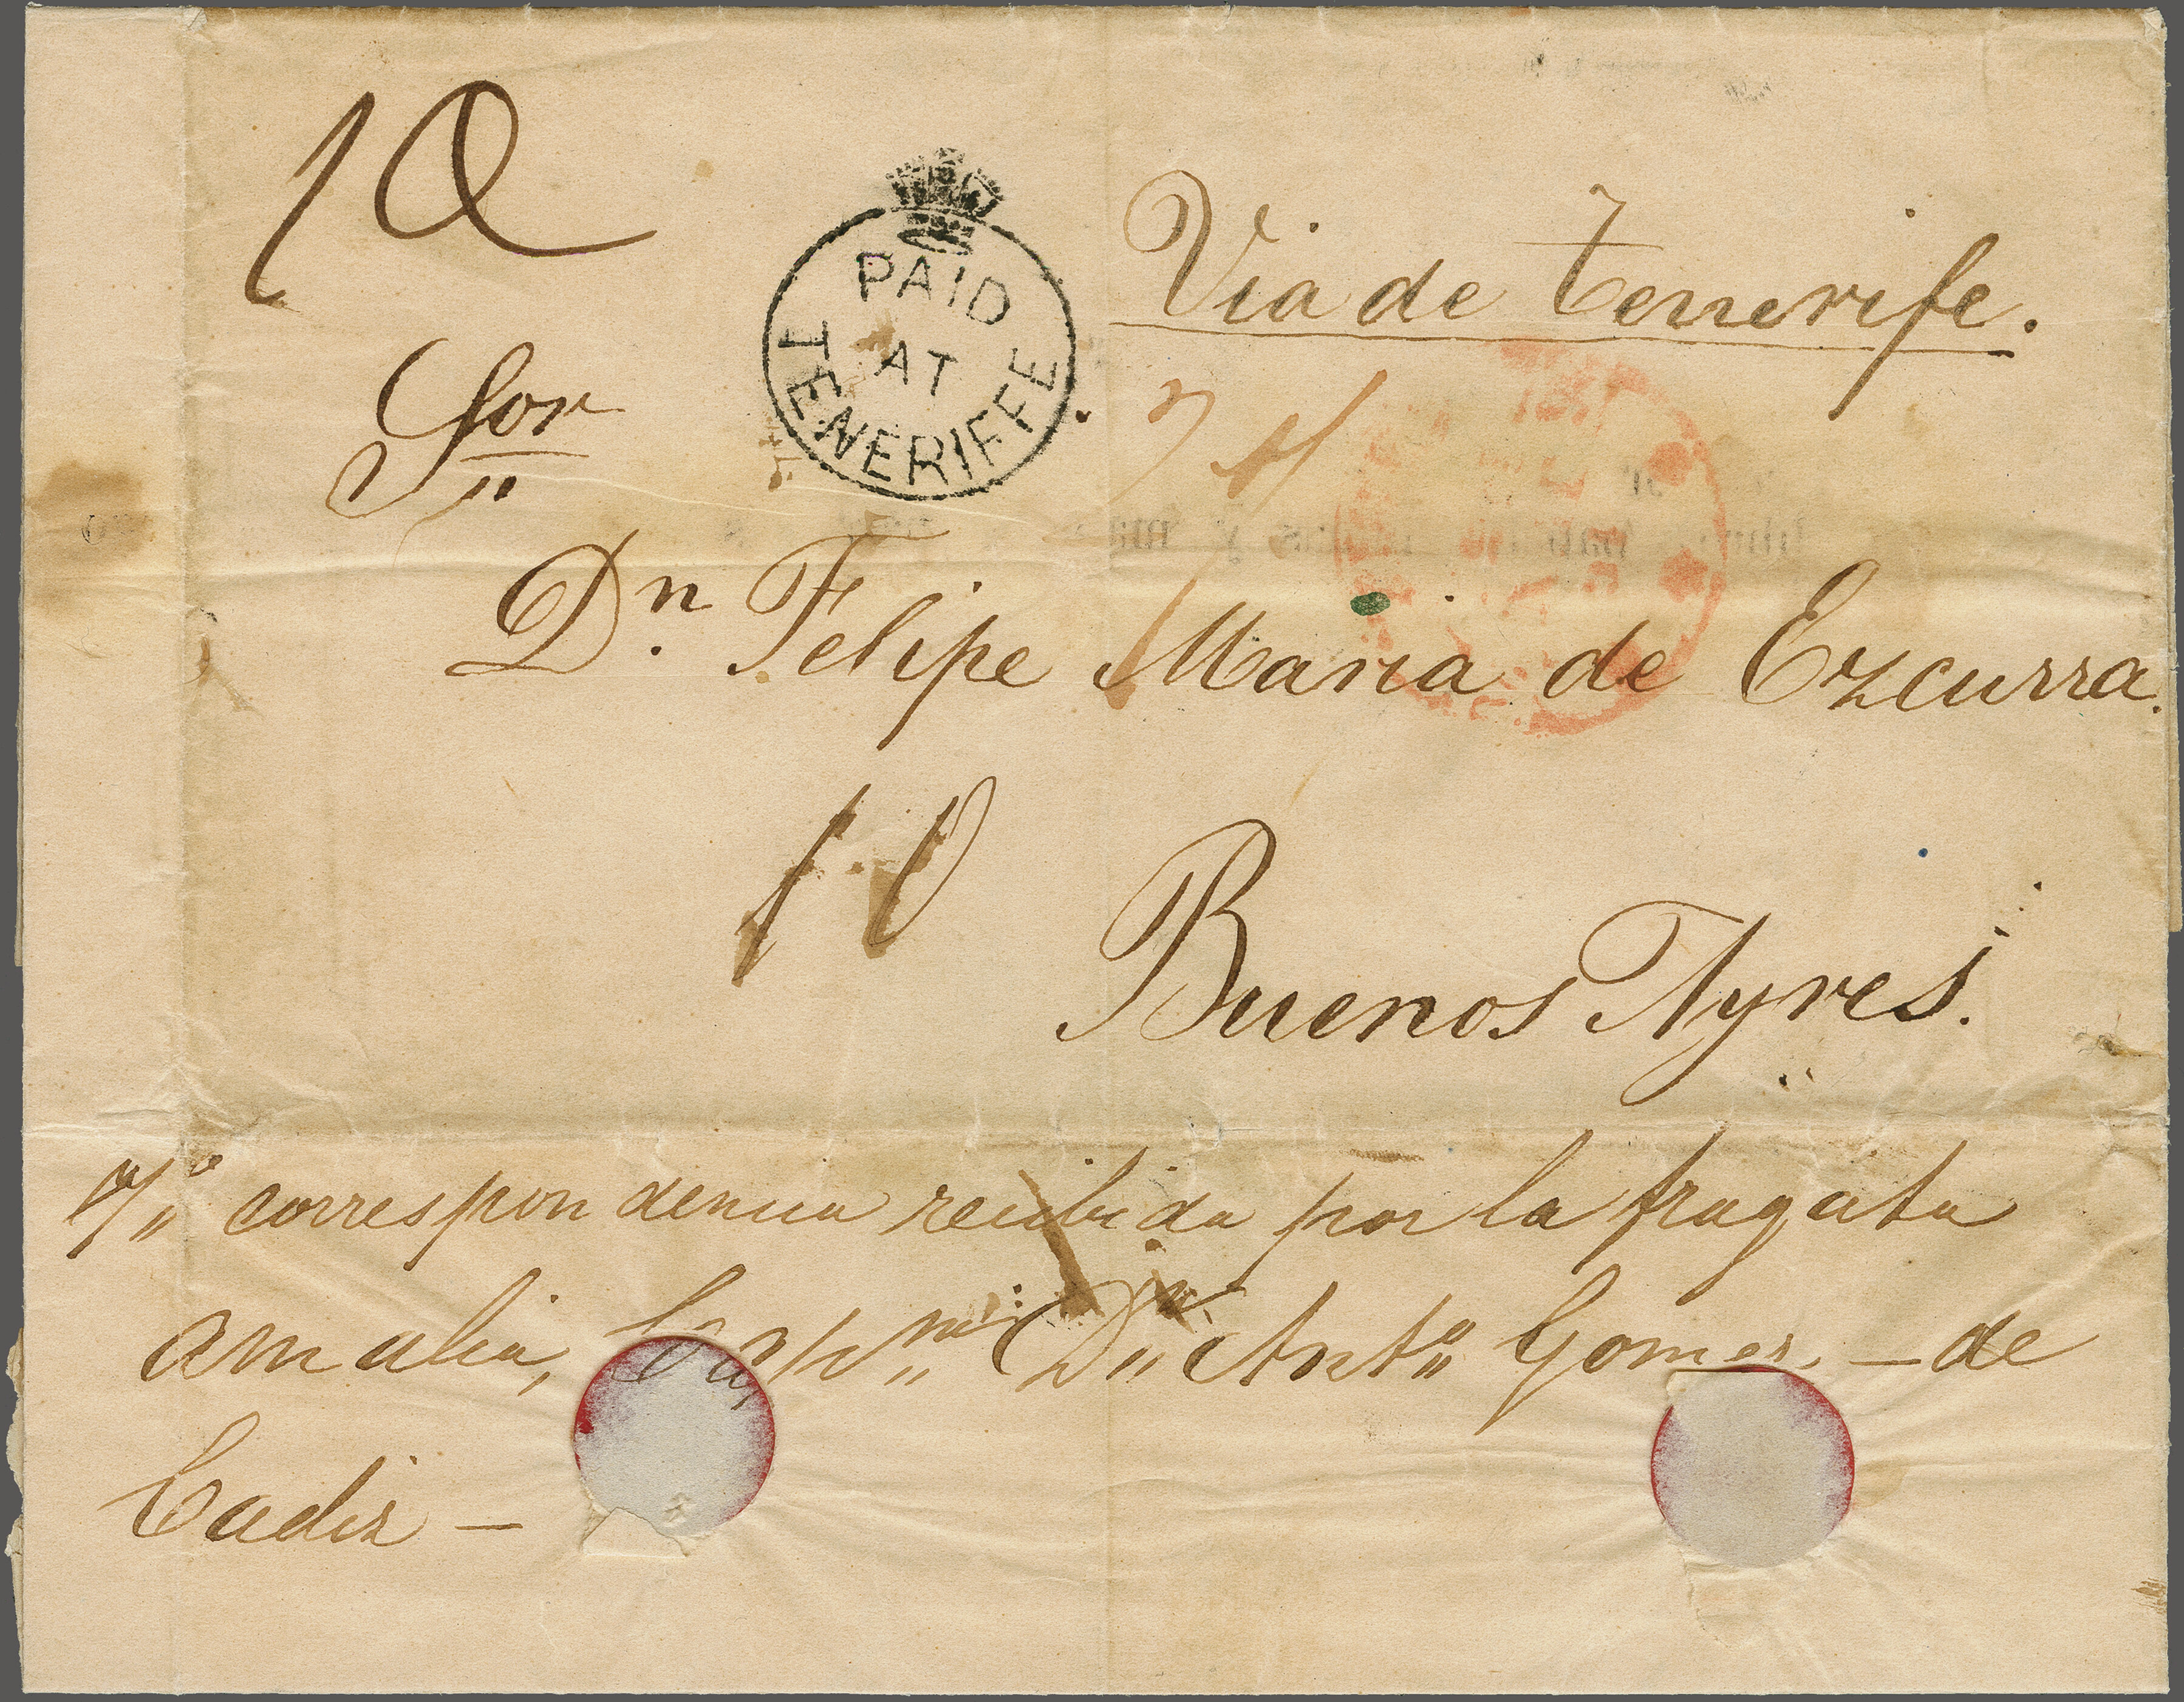 10
PAID
AT
TENERIFFE
Via de Tenerife.
Sor
Dn. Felipe Maria de Ezcurra.
10
Buenos Ayres.
correspondencia recibida por la fragata
Amalia, Capn. Dn Anto Gomez, — de
Cadiz —